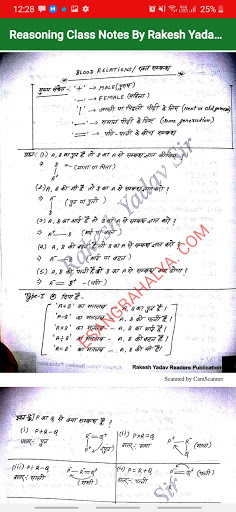 12:28
25%
Reasoning Class Notes By Rakesh Yada...
BLOOD RELATIONS / रक्त सम्बन्ध
मुख्य संकेत - '+' → MALE (पुरुष)
'-' → FEMALE (महिला)
'|' → अगली या पिछली पीढ़ी के लिए (Next or Old generation)
'—' → समान पीढ़ी के लिए (Same generation)
'=' → पति-पत्नी के बीच सम्बन्ध
(1) A, B का पुत्र है तो B का A से सम्बन्ध ज्ञात कीजिए
(2) A, B की माँ है तो B का A से सम्बन्ध ज्ञात करो ?
(पुत्र या पुत्री)
(3) A, B का भाई है तो B का A से सम्बन्ध ज्ञात करो ?
(भाई या बहन)
(4) A, B की बहन है तो B का A से सम्बन्ध ज्ञात करो ?
(भाई या बहन)
(5) A, B की पत्नी है तो B का A से सम्बन्ध क्या होगा ?
A⁻ = B⁺ (पति)
Type-I
'A+B' का मतलब A, B का पुत्र है!
'A-B' का मतलब - A, B की पत्नी है!
'A×B' का मतलब - A, B का भाई है!
'A÷B' का मतलब - A, B की माँ है!
'A=B' का मतलब - A, B की बहन है!
Rakesh Yadav Sir
ESANGRAHALYA.COM
Rakesh Yadav Readers Publication
Scanned by CamScanner
P का Q से क्या सम्बन्ध है ?
(i) P+R-Q
पुत्र
(ii) P÷R=Q
माता
(iii) P=R-Q
साली
(iv) P=R+Q
पुत्री
Sir